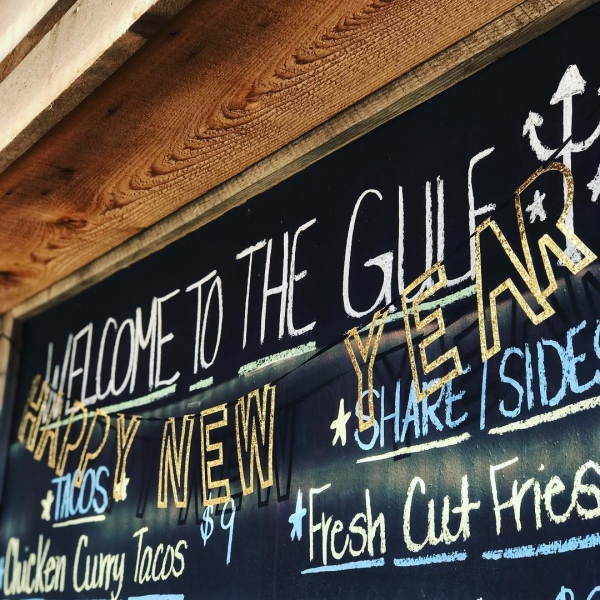 WELCOME TO THE GULF
HAPPY NEW YEAR
TACOS
Chicken Curry Tacos $9
SHARE / SIDES
Fresh Cut Fries